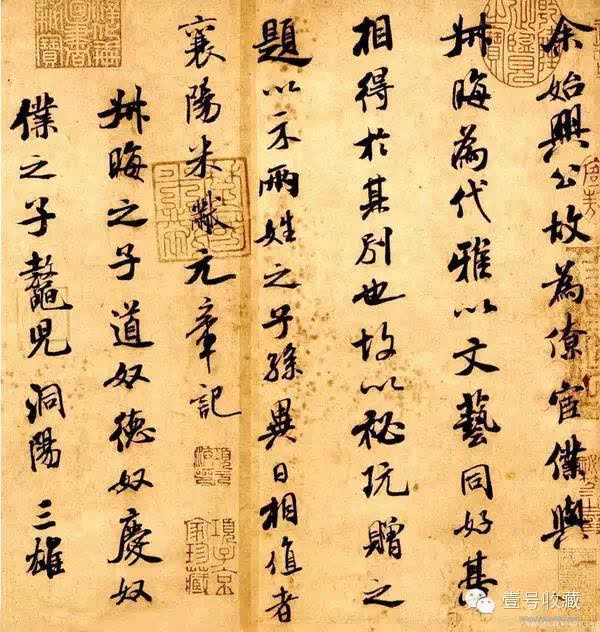 余始興公故為僚宦僕與
叔晦為代雅以文藝同好甚
相得於其別也故以秘玩贈之
題以示兩姓之子孫異日相值者
襄陽米黻元章記
叔晦之子道奴德奴慶奴
僕之子鼇兒洞陽三雄
項子京
家珍藏
壹号收藏